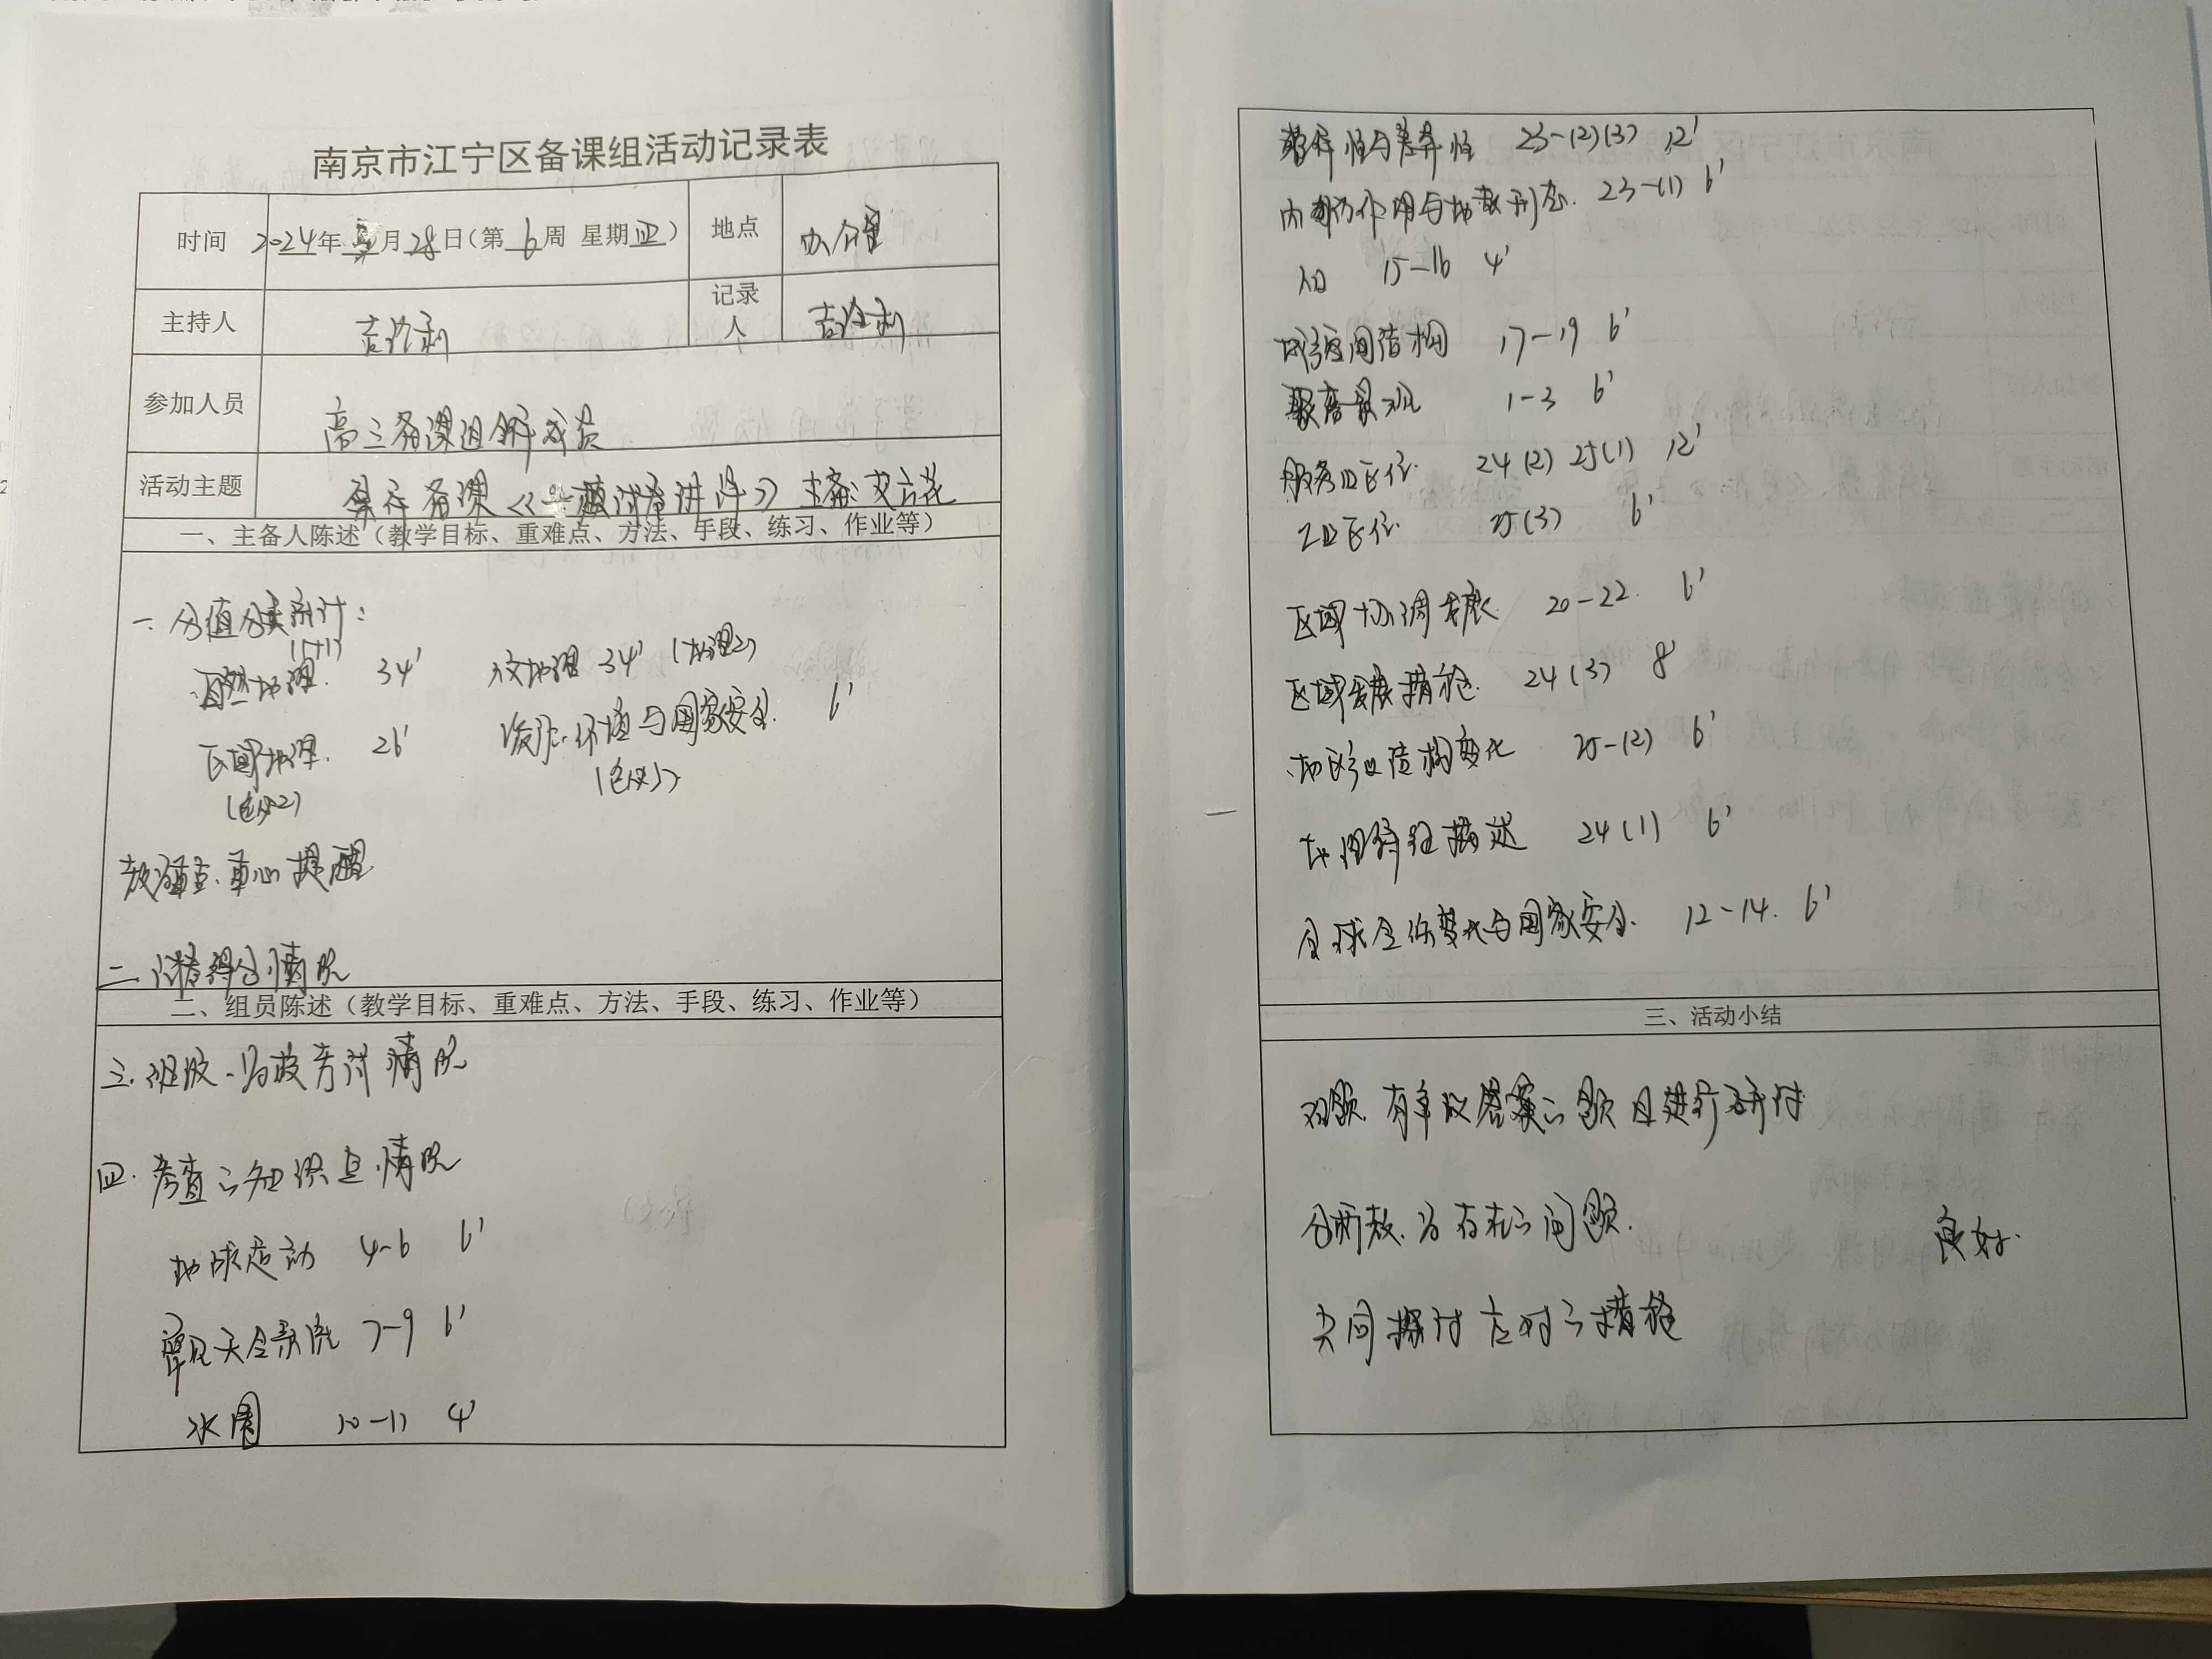 南京市江宁区备课组活动记录表
时间 2024年3月28日(第6周 星期四) 地点 办公室
主持人 记录人
参加人员 高三备课组全体成员
活动主题 集体备课《一模试卷讲评》 主备:
一、主备人陈述(教学目标、重难点、方法、手段、练习、作业等)
一、分值分类统计:
(1+1)
自然地理 34' 人文地理 34' (地理2)
区域地理 26' 资源、环境与国家安全 6'
(选必2) (选必3)
教学重点、重心提醒
二、试卷得分情况
二、组员陈述(教学目标、重难点、方法、手段、练习、作业等)
三、班级、均分 情况
四、考查的知识点情况
地球运动 4-6 6'
常见天气系统 7-9 6'
水圈 10-11 4'
整体性与差异性 23-(2)(3) 12'
内外力作用与地表形态 23-(1) 6'
人口 15-16 4'
城乡空间结构 17-19 6'
聚落景观 1-3 6'
服务业区位 24(2) 25(1) 12'
工业区位 25(3) 6'
区域协调发展 20-22 6'
区域发展措施 24(3) 8'
地区产业结构变化 25-(2) 6'
地理特征描述 24(1) 6'
全球气候变化与国家安全 12-14 6'
三、活动小结
对题 有争议答案的题目进行研讨
分析 存在的问题
良好
共同探讨应对的措施